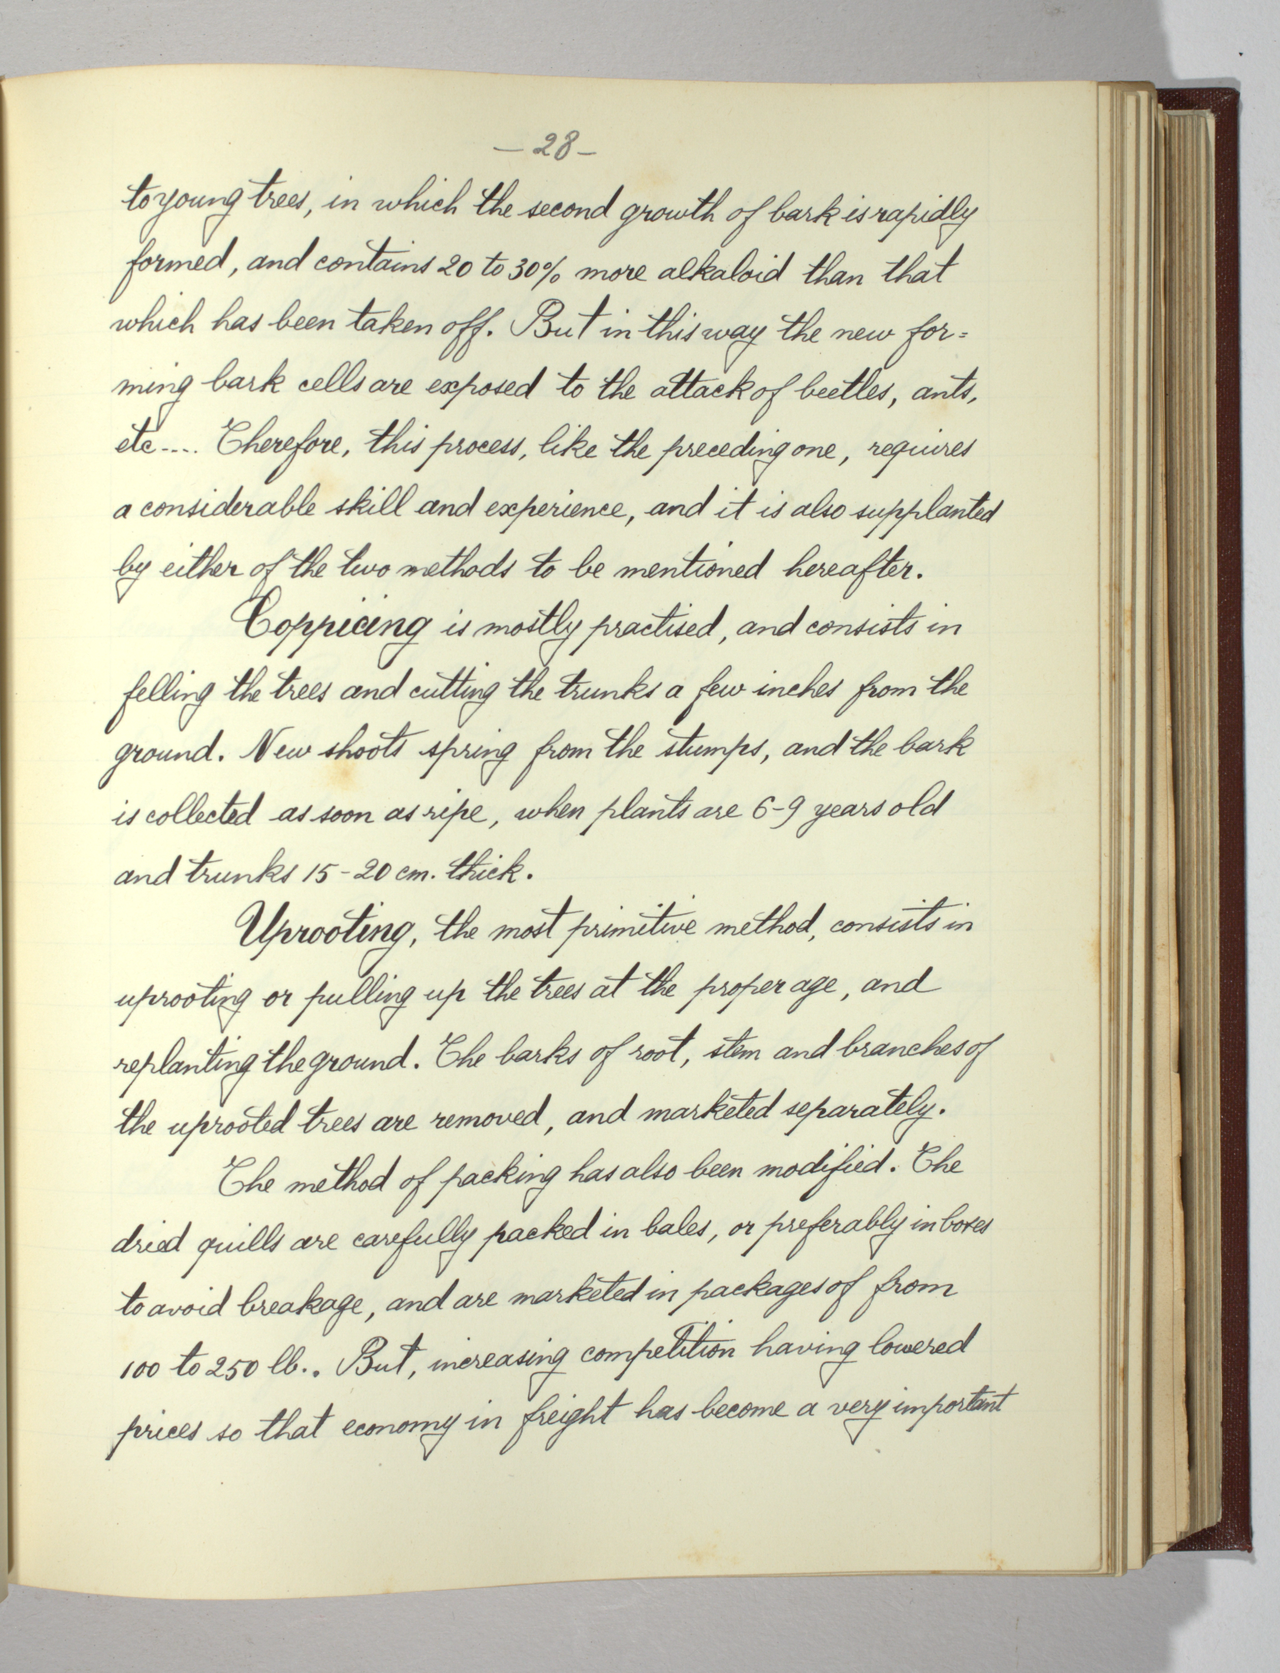 — 28 —
to young trees, in which the second growth of bark is rapidly
formed, and contains 20 to 30% more alkaloid than that
which has been taken off. But in this way the new for=
ming bark cells are exposed to the attack of beetles, ants,
etc.... Therefore, this process, like the preceding one, requires
a considerable skill and experience, and it is also supplanted
by either of the two methods to be mentioned hereafter.
Coppicing is mostly practised, and consists in
felling the trees and cutting the trunks a few inches from the
ground. New shoots spring from the stumps, and the bark
is collected as soon as ripe, when plants are 6-9 years old
and trunks 15-20 cm. thick.
Uprooting, the most primitive method, consists in
uprooting or pulling up the trees at the proper age, and
replanting the ground. The barks of root, stem and branches of
the uprooted trees are removed, and marketed separately.
The method of packing has also been modified. The
dried quills are carefully packed in bales, or preferably in boxes
to avoid breakage, and are marketed in packages of from
100 to 250 lb.. But, increasing competition having lowered
prices so that economy in freight has become a very important